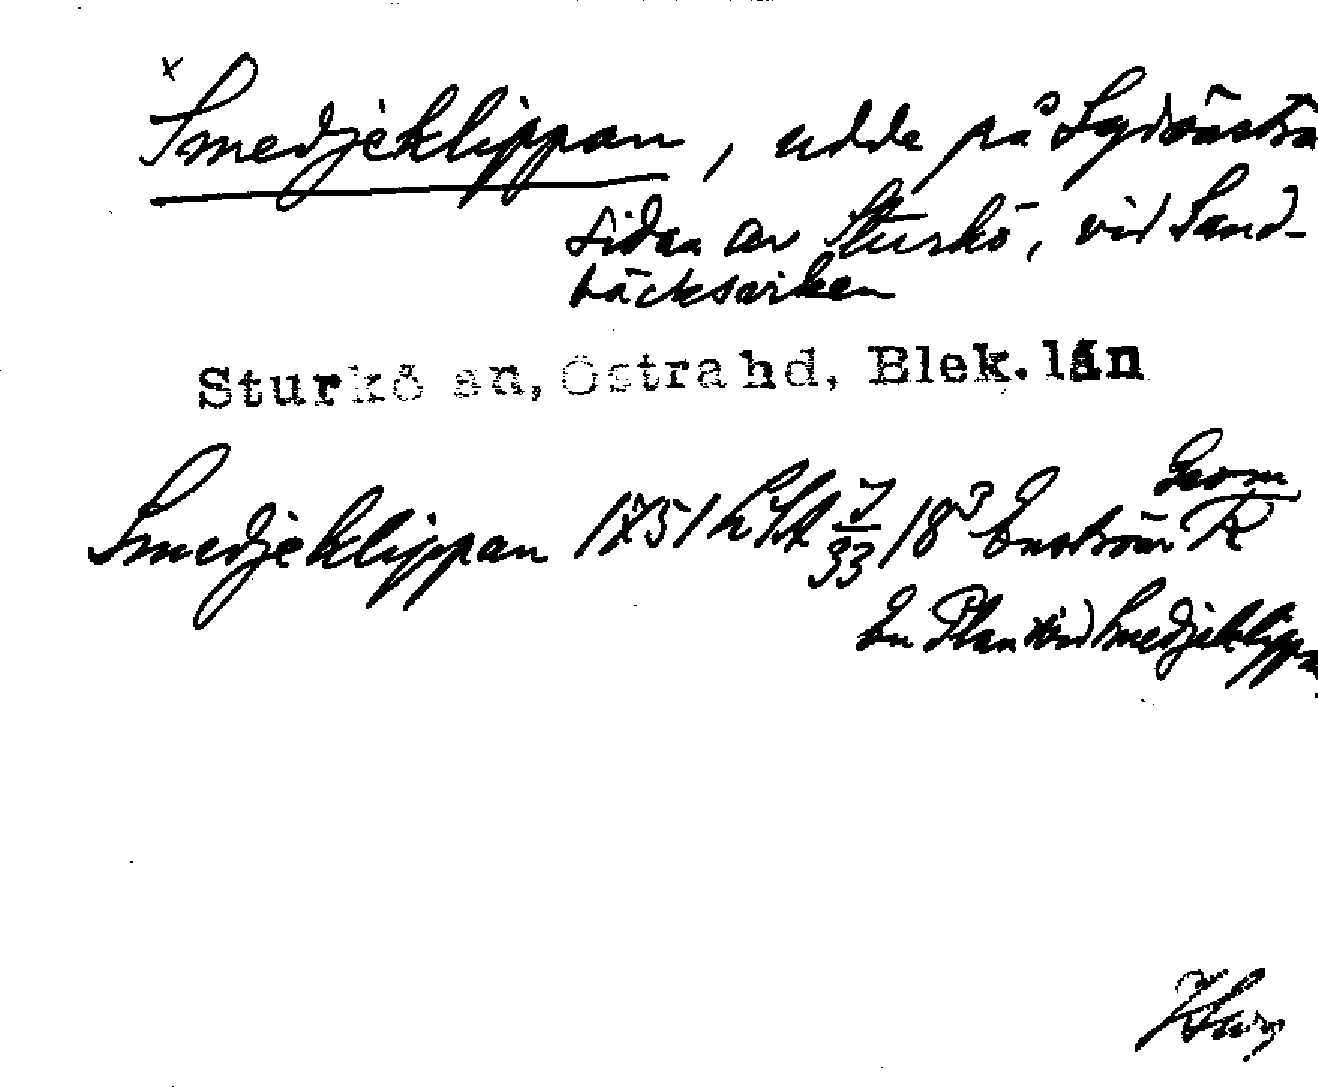 x
Smedjeklippan, udde på Sydöstra
sidan av Sturkö, vid Sand-
bäcksviken
Sturkö sn, Östra hd, Blek. län
Geom
Smedjeklippan 1751 J/33 /18 3 Enström R
En Plan vid Smedjeklippan